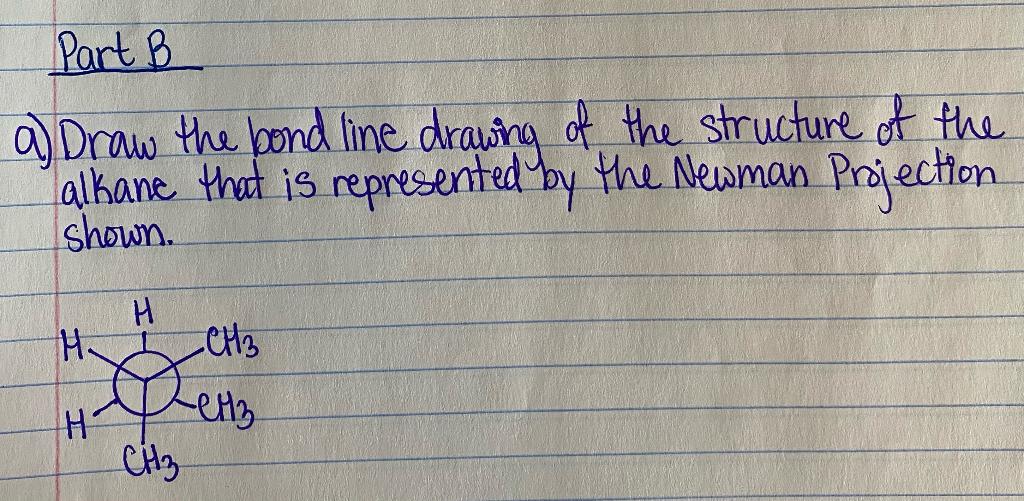 Part B
a) Draw the bond line drawing of the structure of the
alkane that is represented by the Newman Projection
shown.
H
H CH3
H CH3
CH3